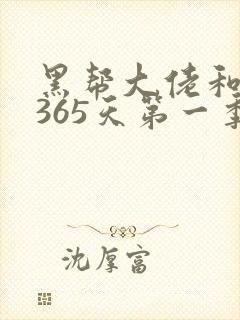 黑帮大佬和
365天第一季
沈厚富